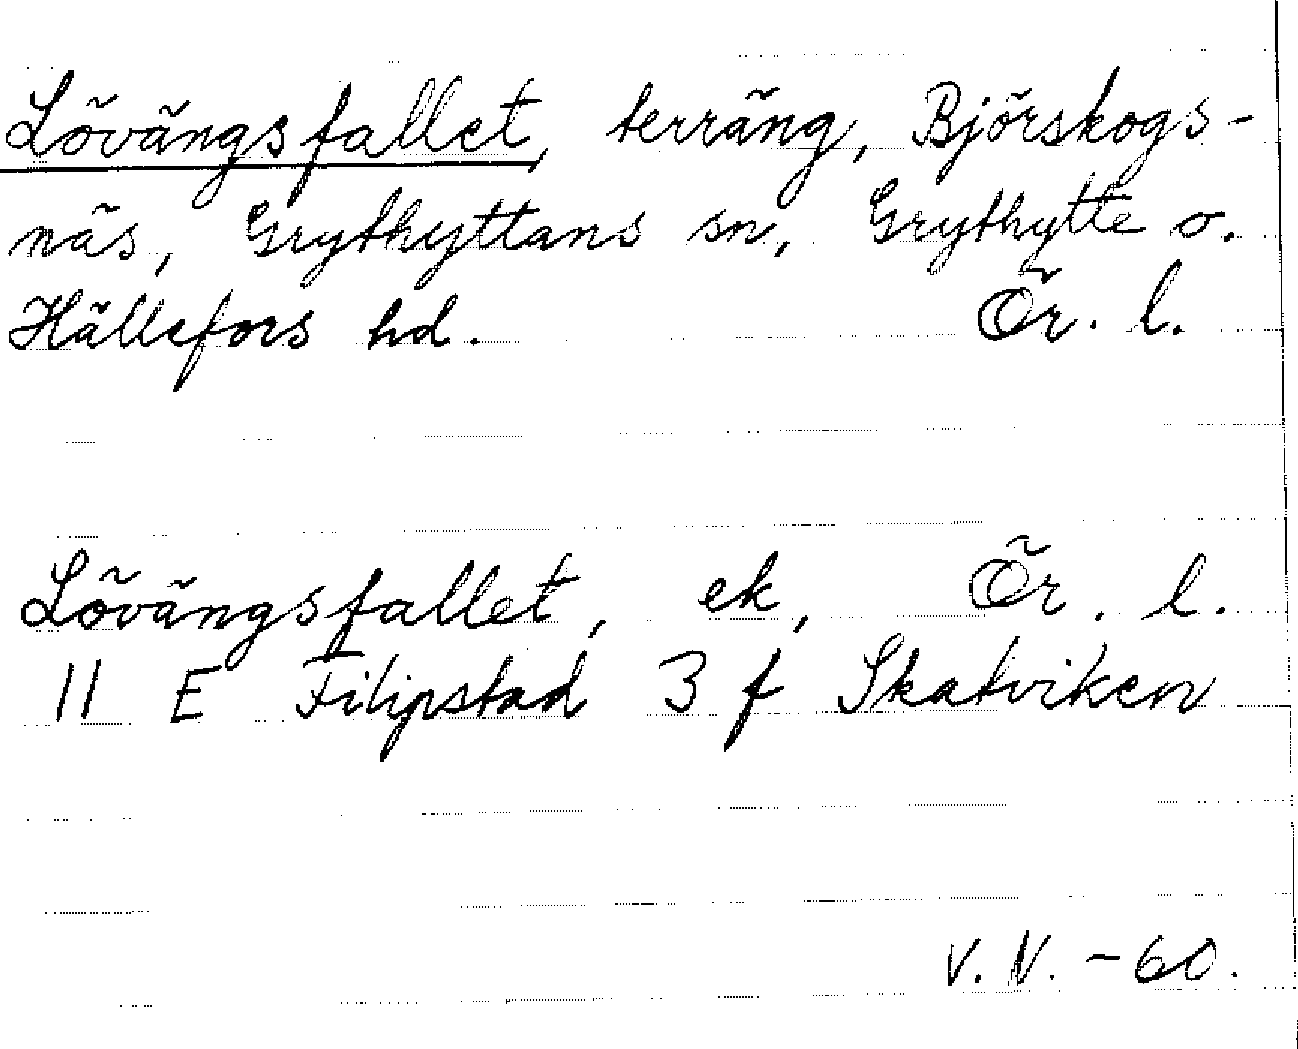 Lövängsfallet, terräng, Björskogs-
näs, Grythyttans sn, Grythytte o.
Hällefors hd. Ör. l.
Lövängsfallet, ek, Ör. l.
11 E Filipstad 3 f Skatviken
V. N. -60.